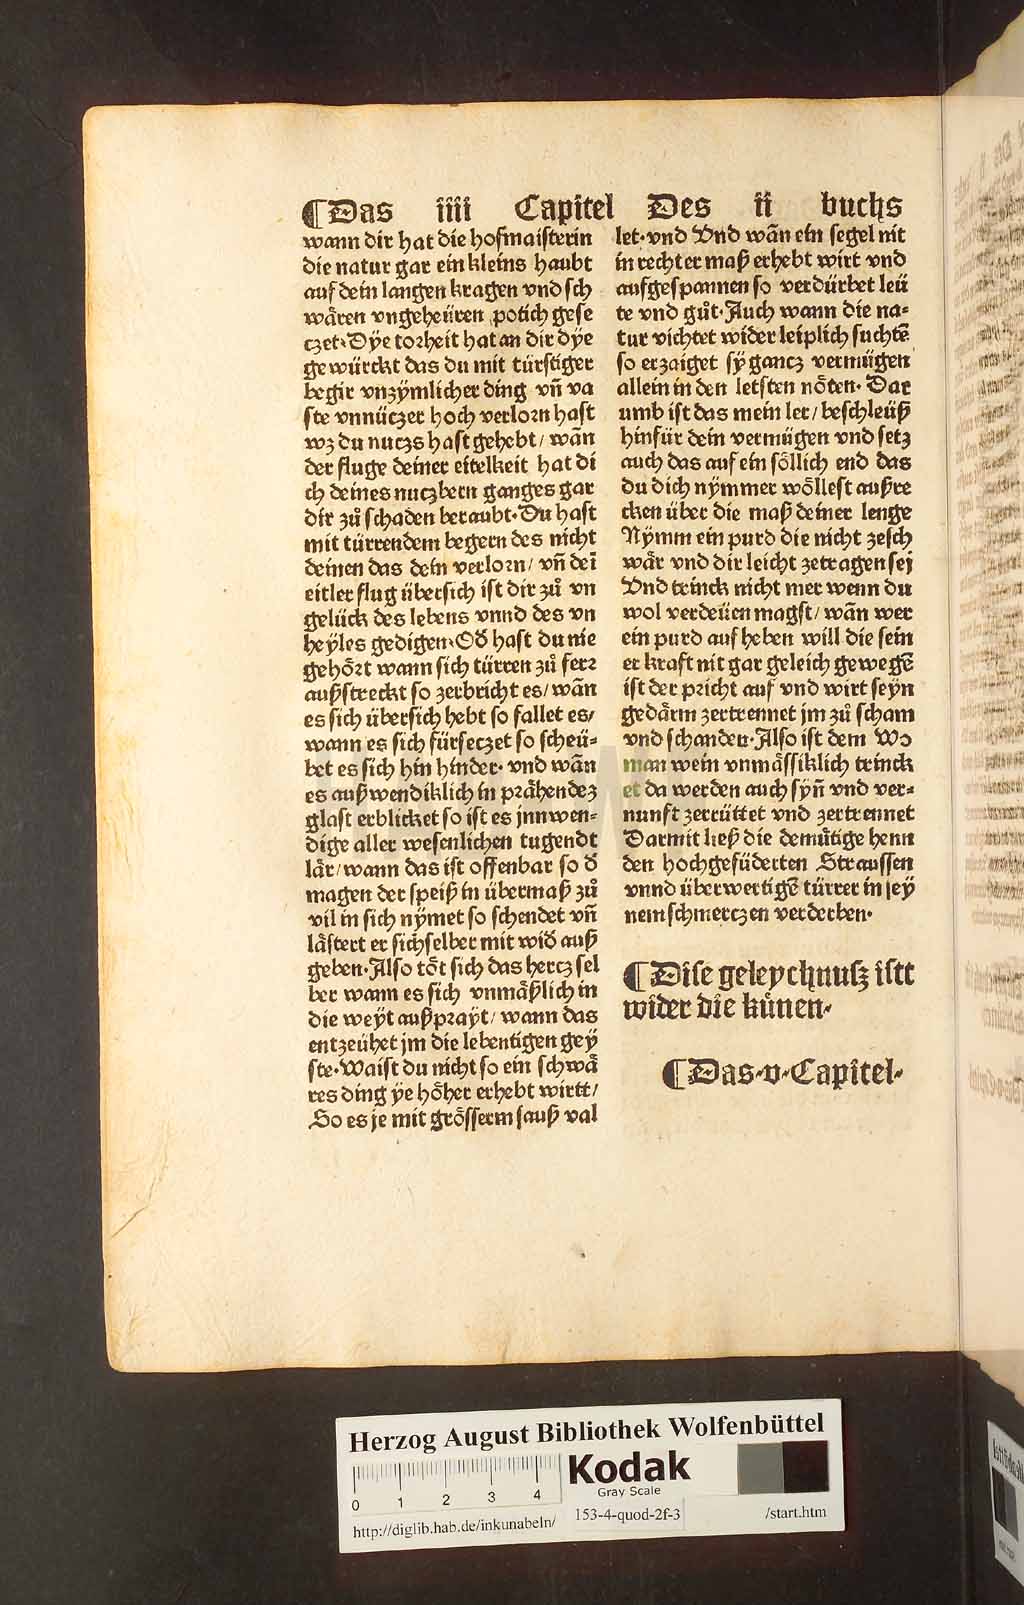 ¶Das iiii Capitel Des ii buchs
wann dir hat die hofmaisterin
die natur gar ein kleins haubt
auf dein langen kragen vnd sch
wären vngeheüren potich gese
czet·Dÿe torheit hat an dir dÿe
gewürckt das du mit türstiger
begir vnzÿmlicher ding vn̄ va
ste vnnüczer hoch verlorn hast
wz du nuczs hast gehebt/ wān
der fluge deiner eitelkeit hat di
ch deines nuczbern ganges gar
dir zů schaden beraubt·Du hast
mit türrendem begern des nicht
deinen das dein verlorn/ vn̄ dei̅
eitler flug übersich ist dir zů vn
gelück des lebens vnnd des vn
heÿles gedigen·Od̕ hast du nie
gehört wann sich türren zů ferr
außstreckt so zerbricht es/ wān
es sich übersich hebt so fallet es/
wann es sich fürseczet so scheü-
bet es sich hin hinder· vnd wān
es außwendiklich in prähendez
glast erblicket so ist es jnnwen-
dige aller wesenlichen tugendt
lär/wann das ist offenbar so d̕
magen der speiß in übermaß zů
vil in sich nÿmet so schendet vn̄
lästert er sichselber mit wid̕ auß
geben·Also töt sich das hercz sel
ber wann es sich vnmäßlich in
die weÿt außpraÿt/ wann das
entzeühet jm die lebentigen geÿ
ste·Waist du nicht so ein schwä
res ding ÿe höher erhebt wirtt/
So es je mit grösserm sauß val
let·vnd Vnd wān ein segel nit
in rechter maß erhebt wirt vnd
aufgespannen so verdürbet leü
te vnd gůt·Auch wann die na-
tur vichtet wider leiplich suchtē
so erzaiget sÿ gancz vermügen
allein in den letsten nöten· Dar
umb ist das mein ler/ beschleüß
hinfür dein vermügen vnd setz
auch das auf ein söllich end das
du dich nÿmmer wöllest außre
cken über die maß deiner lenge
Nÿmm ein purd die nicht zesch
wär vnd dir leicht zetragen sej
Vnd trinck nicht mer wenn du
wol verdeüen magst/ wān wer
ein purd auf heben will die sein
er kraft nit gar geleich gewegē
ist der pricht auf vnd wirt seÿn
gedärm zertrennet jm zů scham
vnd schanden·Also ist dem Wo
man wein vnmässiklich trinck
et da werden auch sÿn̄ vnd ver-
nunft zerrüttet vnd zertrennet
Darmit ließ die demütige henn
den hochgefüderten Straussen
vnnd überwertigē türrer in seÿ
nem schmerczen verderben·
¶Dise geleychnusz istt
wider die künen·
¶Das·v·Capitel·
Herzog August Bibliothek Wolfenbüttel
0 1 2 3 4
Kodak
Gray Scale
http://diglib.hab.de/inkunabeln/ 153-4-quod-2f-3 /start.htm